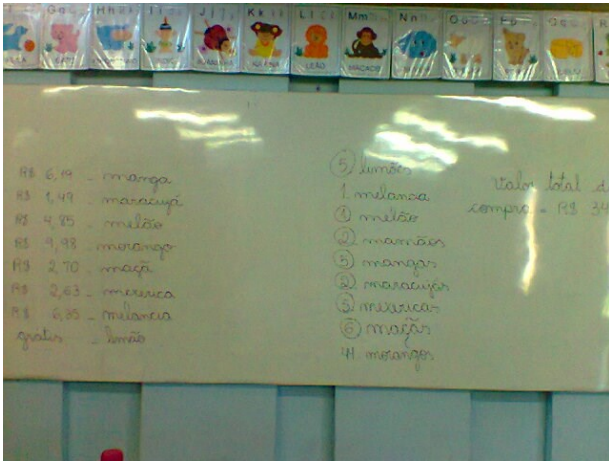 Gg
Hh
Ii
Jj
Kk
Ll
Mm
Nn
LEÃO
MACACO
R$ 6,19 - manga
R$ 1,49 - maracujá
R$ 4,85 - melão
R$ 9,98 - morango
R$ 2,70 - maçã
R$ 2,63 - mexerica
R$ 6,35 - melancia
gratis - limão
5 limões
1 melancia
1 melão
2 mamãos
5 mangas
2 maracujás
3 mexericas
6 maçãs
41 morangos
Valor total d
compra = R$ 34